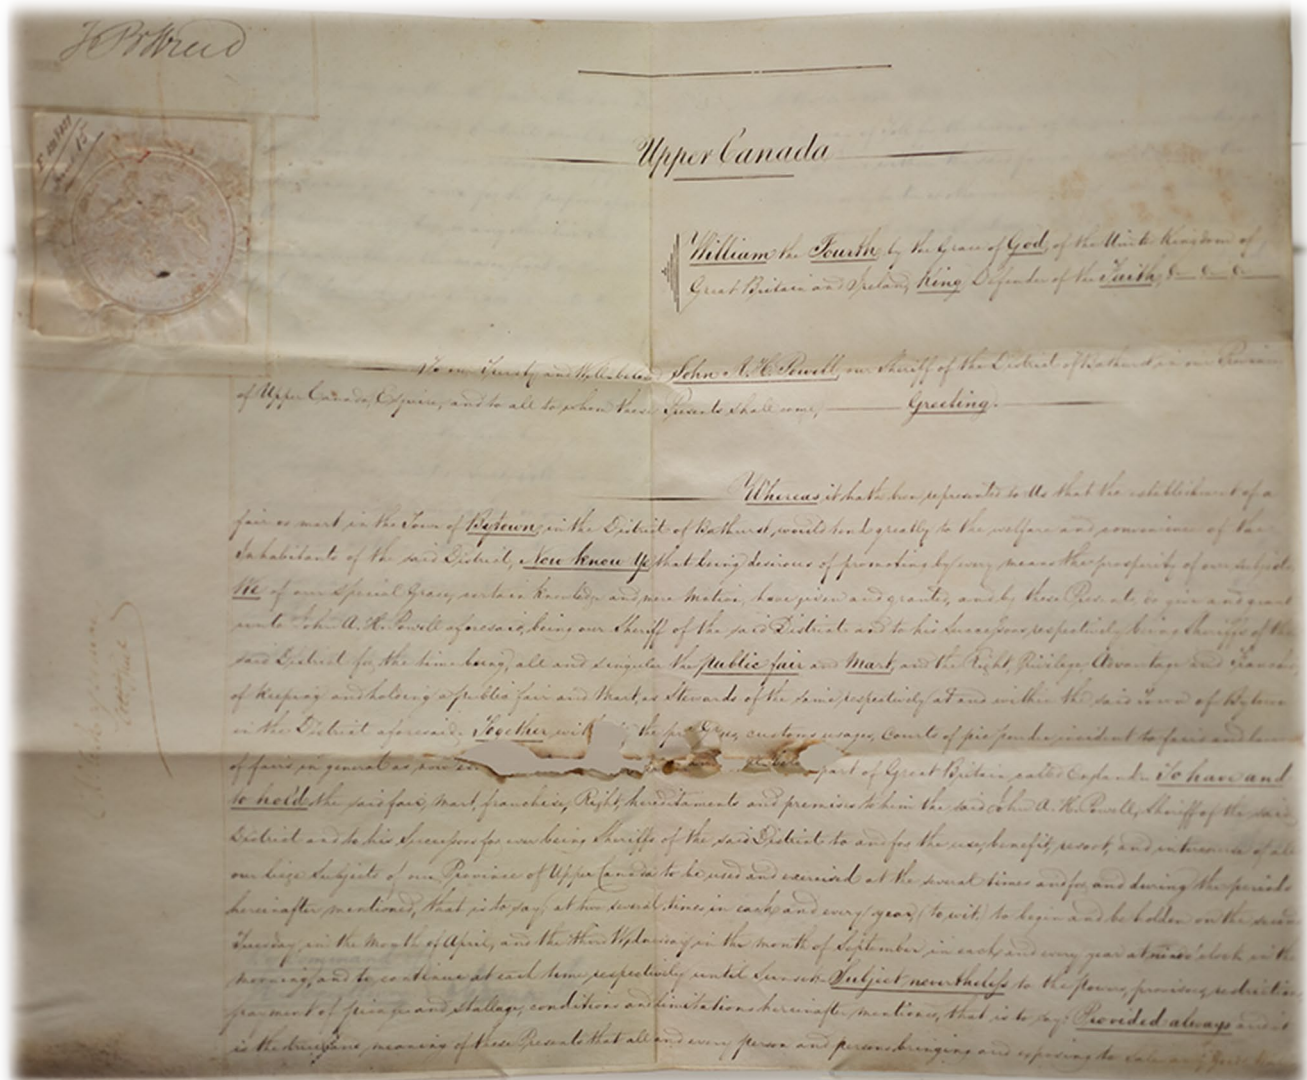 Upper Canada
William the Fourth by the Grace of God, of the Unite Kingdom of
Great Britain and Ireland, King, Defender of the Faith, &c &c &c
To our Trusty and Wellbeloved John A. H. Powell, our Sheriff of the District of Bathurst in our Province
of Upper Canada, Esquire, and to all to whom these Presents shall come, Greeting.
Whereas it hath been represented to Us that the establishment of a
fair or mart in the Town of Bytown, in the District of Bathurst, would tend greatly to the welfare and convenience of the
Inhabitants of the said District, Now know Ye that being desirous of promoting by every means the prosperity of our subjects
We of our Special Grace, certain knowledge and mere Motion, have given and granted, and by these Presents, do give and grant
unto John A. H. Powell aforesaid, being our Sheriff of the said District and to his Successors respectively being Sheriffs of the
said District for the time being, all and singular the public fair and Mart, and the Right, Privilege, Advantage and
of keeping and holding a public fair and Mart, as Stewards of the same respectively at and within the said Town of Bytown
in the District aforesaid. Together with the customs usages, Courts of pie poudre incident to fairs and
of fairs in general as now part of Great Britain called England. To have and
to hold the said fair, Mart, franchise, Right, hereditaments and premises to him the said John A. H. Powell, Sheriff of the said
District and to his Successors for ever being Sheriffs of the said District to and for the use, benefit, resort, and intercourse of all
our liege Subjects of our Province of Upper Canada to be used and exercised at the several times and for and during the periods
hereinafter mentioned, that is to say, at two several times in each and every year, (to wit) to begin and be holden on the second
Tuesday in the Month of April, and the third Wednesday in the month of September, in each and every year at nine o'clock in the
morning, and to continue at each time respectively until Sunset. Subject nevertheless to the powers, provisoes, restrictions
payment of picage and stallage, conditions and limitations hereinafter mentioned, that is to say; Provided always and it
is the true meaning of these Presents that all and every person and persons bringing and exposing to sale any